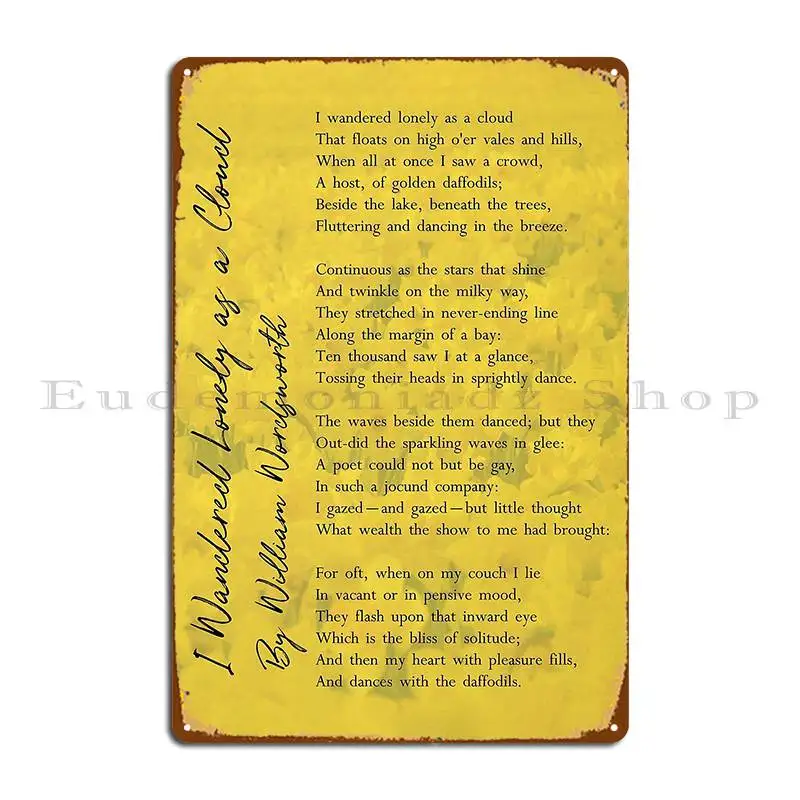 I Wandered Lonely as a Cloud
By William Wordsworth
I wandered lonely as a cloud
That floats on high o'er vales and hills,
When all at once I saw a crowd,
A host, of golden daffodils;
Beside the lake, beneath the trees,
Fluttering and dancing in the breeze.
Continuous as the stars that shine
And twinkle on the milky way,
They stretched in never-ending line
Along the margin of a bay:
Ten thousand saw I at a glance,
Tossing their heads in sprightly dance.
The waves beside them danced; but they
Out-did the sparkling waves in glee:
A poet could not but be gay,
In such a jocund company:
I gazed—and gazed—but little thought
What wealth the show to me had brought:
For oft, when on my couch I lie
In vacant or in pensive mood,
They flash upon that inward eye
Which is the bliss of solitude;
And then my heart with pleasure fills,
And dances with the daffodils.
Eudemoniadz Shop